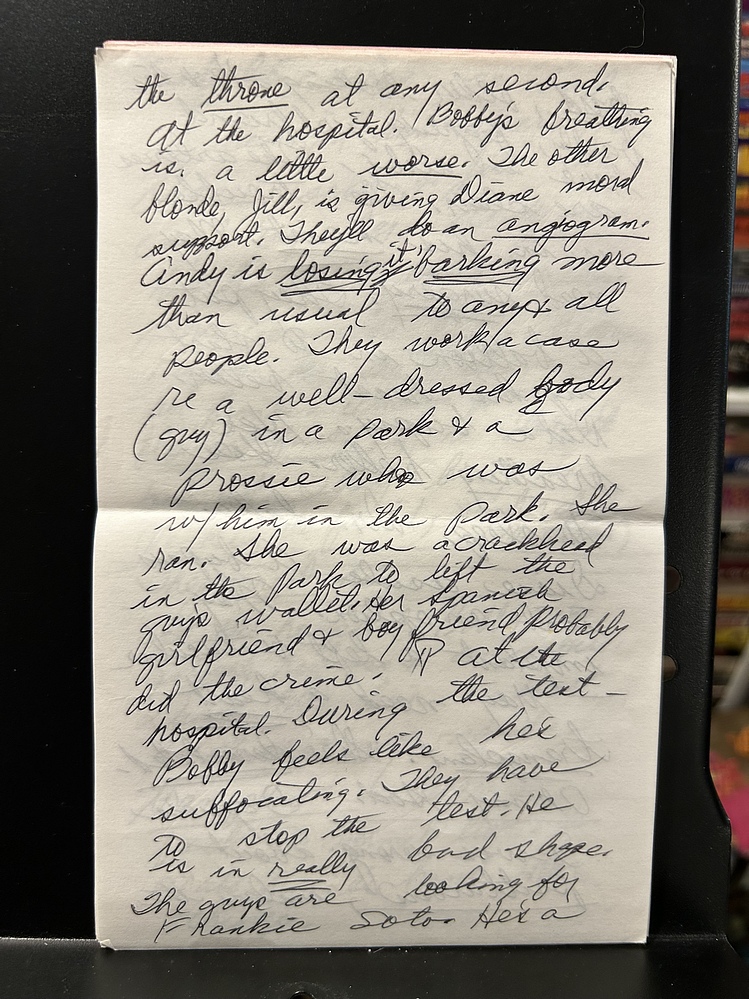 the throne at any second.
At the hospital. Bobby's breathing
is a little worse. The other
blonde, Jill, is giving Diane moral
support. They'll do an angiogram.
Andy is losing it, barking more
than usual to any & all
people. They work a case
re a well-dressed body
(guy) in a park & a
prossie who was
w/ him in the park. She
ran. She was a crackhead
in the park to lift the
guy's wallet. Her Spanish
girlfriend & boyfriend probably
did the crime. ¶ At the
hospital. During the test-
Bobby feels like he's
suffocating. They have
to stop the test. He
is in really bad shape.
The guys are looking for
Frankie Soto. He's a